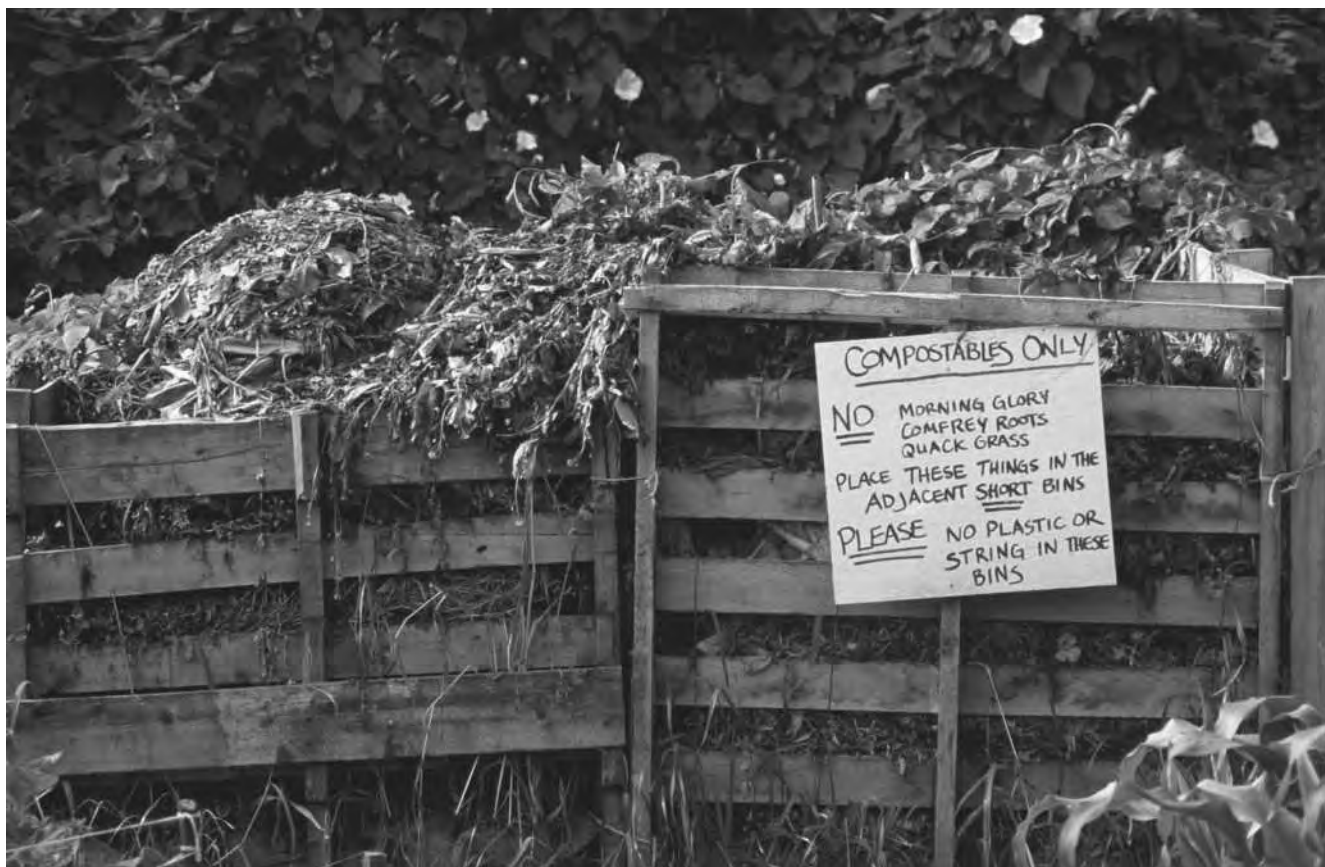 COMPOSTABLES ONLY
NO MORNING GLORY
COMFREY ROOTS
QUACK GRASS
PLACE THESE THINGS IN THE
ADJACENT SHORT BINS
PLEASE NO PLASTIC OR
STRING IN THESE
BINS